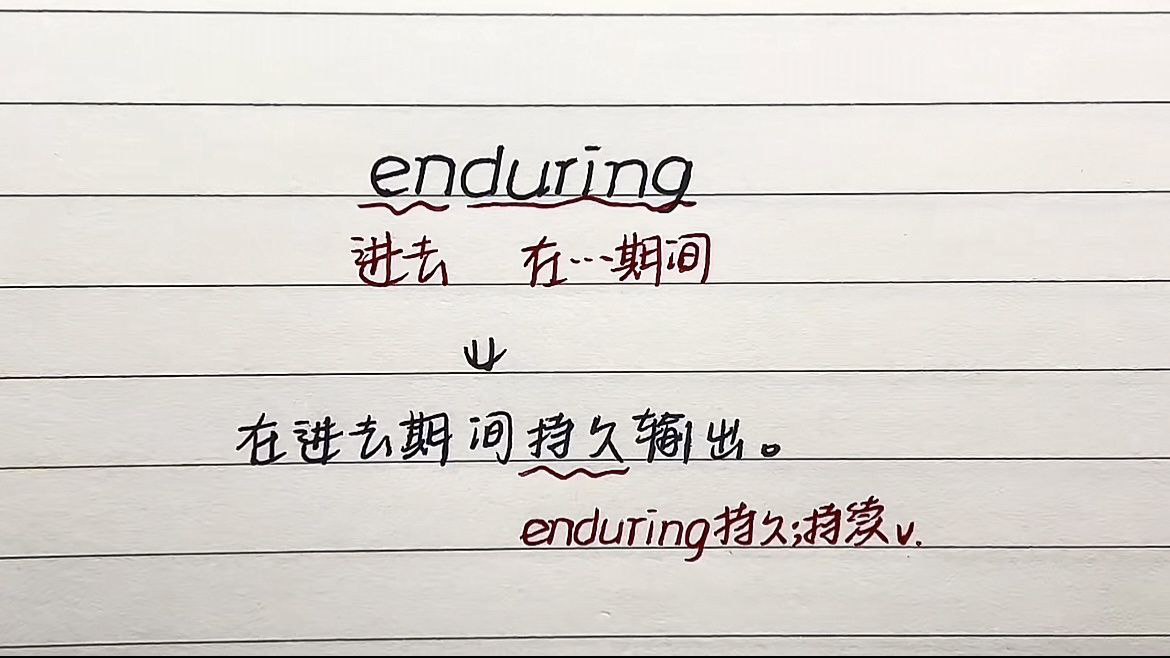 enduring
进去 在…期间
↓
在进去期间持久输出。
enduring持久;持续v.